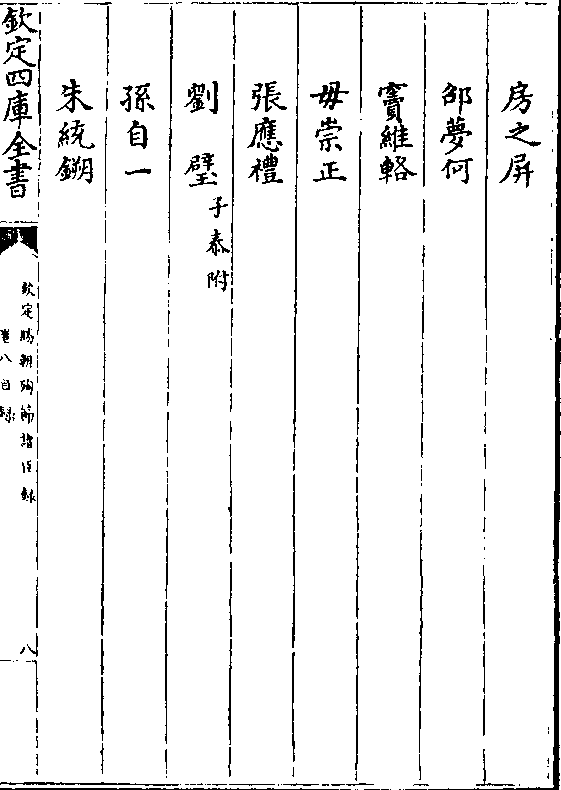 房之屏
邵夢何
竇維輅
毋崇正
張應禮
劉 璧 子泰附
孫自一
朱統𨮫
欽定四庫全書
欽定勝朝殉節諸臣錄
卷八目錄
八